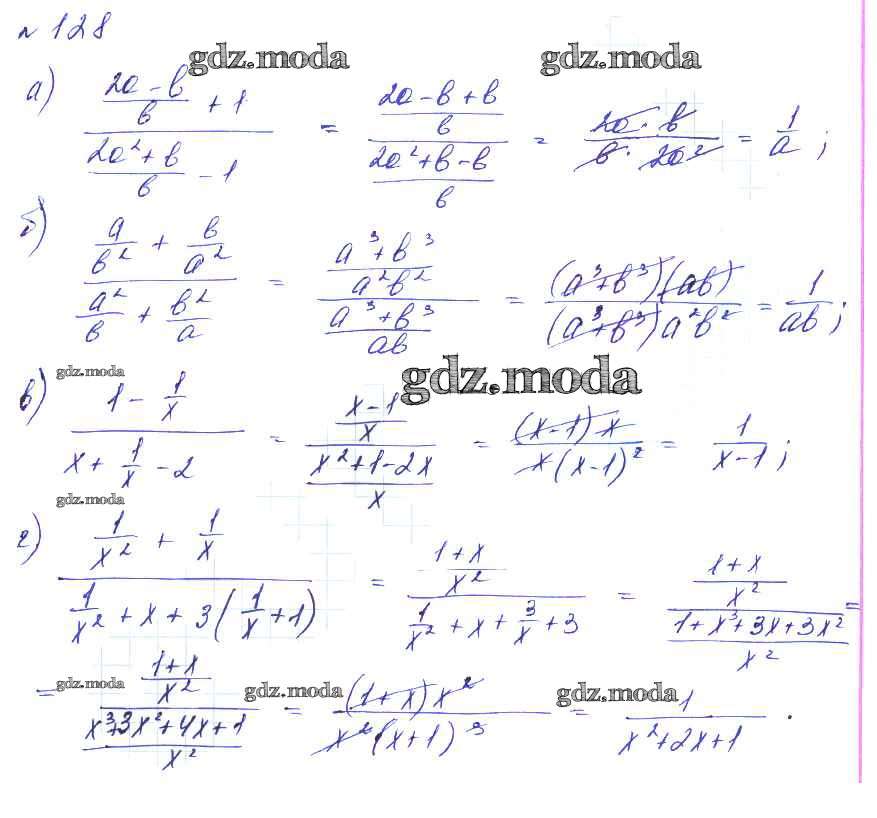 № 128
gdz.moda gdz.moda
а) ((2a-b)/b + 1)/((2a²+b)/b - 1) = ((2a-b+b)/b)/((2a²+b-b)/b) = (2a·b)/(b·2a²) = 1/a ;
б) (a/b² + b/a²)/(a²/b + b²/a) = ((a³+b³)/(a²b²))/((a³+b³)/(ab)) = ((a³+b³)(ab))/((a³+b³)a²b²) = 1/(ab) ;
gdz.moda gdz.moda
в) (1 - 1/x)/(x + 1/x - 2) = ((x-1)/x)/((x²+1-2x)/x) = ((x-1)x)/(x(x-1)²) = 1/(x-1) ;
gdz.moda
г) (1/x² + 1/x)/(1/x² + x + 3(1/x + 1)) = ((1+x)/x²)/(1/x² + x + 3/x + 3) = ((1+x)/x²)/((1+x³+3x+3x²)/x²) =
gdz.moda gdz.moda gdz.moda
= ((1+x)/x²)/((x³+3x²+4x+1)/x²) = ((1+x)x²)/(x²(x+1)³) = 1/(x²+2x+1) .